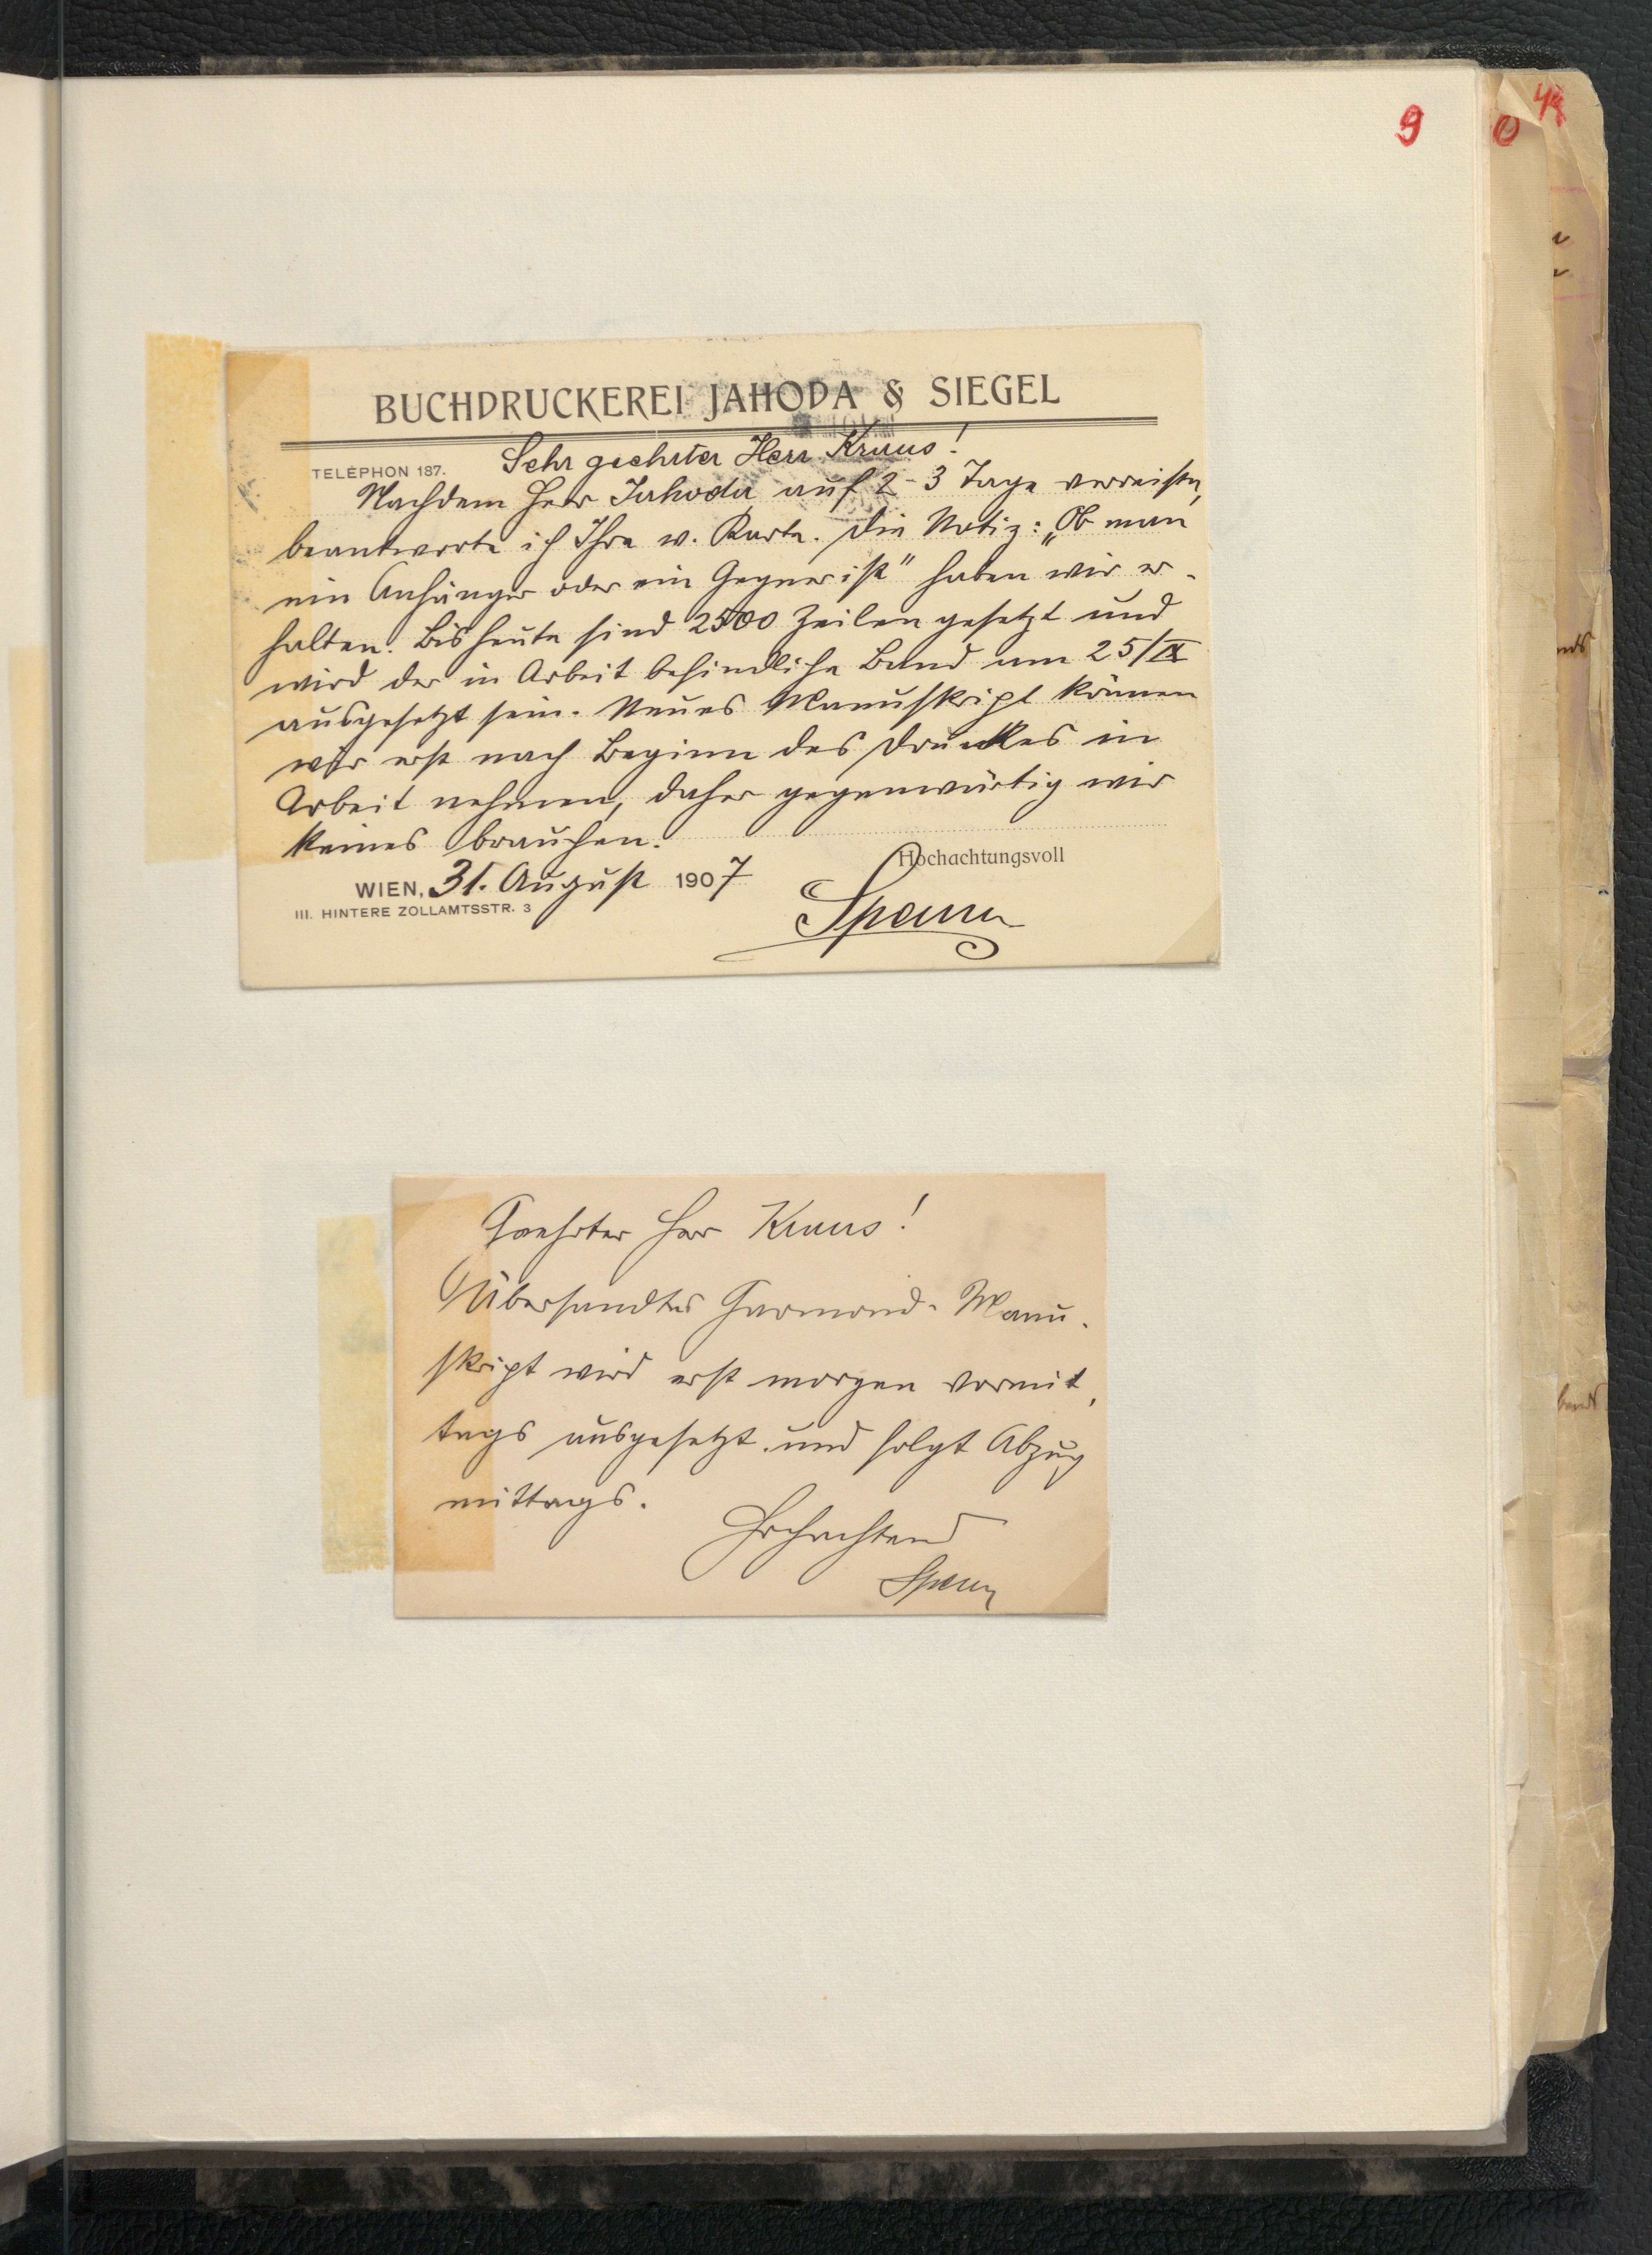 9
BUCHDRUCKEREI JAHODA & SIEGEL
TELEPHON 187.
Sehr geehrter Herr Kraus!
Nachdem Herr Jahoda auf 2-3 Tage verreiste,
beantworte ich Ihre w. Karte. Die Notiz: „Ob man
ein Anhänger oder ein Gegner ist" haben wir er-
halten. Bis heute sind 2500 Zeilen gesetzt und
wird der in Arbeit befindliche Band am 25/IX
ausgesetzt sein. Neues Manuskript können
wir erst nach Beginn des Druckes in
Arbeit nehmen, daher gegenwärtig wir
keines brauchen.
Hochachtungsvoll
WIEN, 31. August 1907
III. HINTERE ZOLLAMTSSTR. 3
Spann
Geehrter Herr Kraus!
Übersandtes Garmond-Manu-
skript wird erst morgen vormit-
tags ausgesetzt und folgt Abzug
mittags.
Hochachtend
Spann